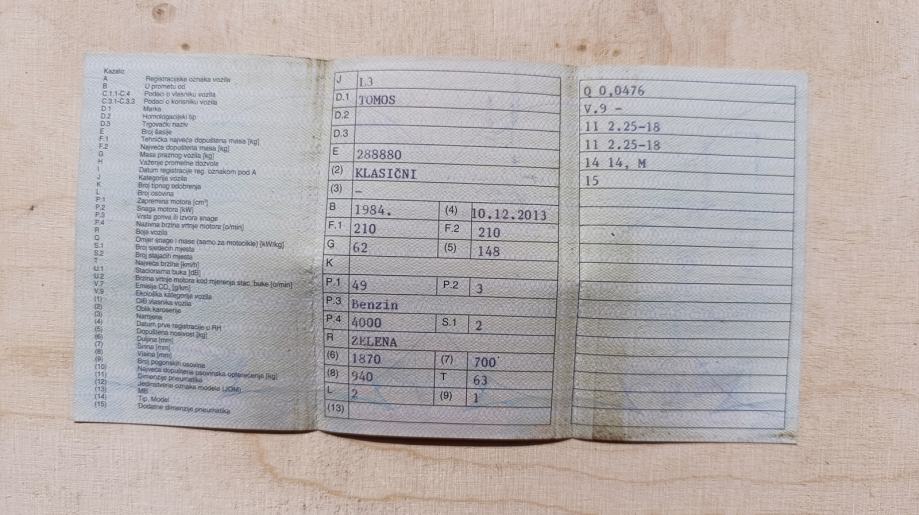 Kazalo:
A Registracijske oznaka vozila
B U prometu od
C.1.1-C.4 Podaci o vlasniku vozila
C.3.1-C.3.3 Podaci o korisniku vozila
D.1 Marka
D.2 Homologacijski tip
D.3 Trgovački naziv
E Broj šasije
F.1 Tehnička najveća dopuštena masa [kg]
F.2 Najveća dopuštena masa [kg]
G Masa praznog vozila [kg]
H Važenje prometne dozvole
I Datum registracije reg. oznakom pod A
J Kategorija vozila
K Broj tipnog odobrenja
L Broj osovina
P.1 Zapremina motora [cm³]
P.2 Snaga motora [kW]
P.3 Vrsta goriva ili izvora snage
P.4 Nazivna brzina vrtnje motora [o/min]
R Boja vozila
Q Omjer snage i mase (samo za motocikle) [kW/kg]
S.1 Broj sjedećih mjesta
S.2 Broj stajaćih mjesta
T Najveća brzina [km/h]
U.1 Stacionarna buka [dB]
U.2 Brzina vrtnje motora kod mjerenja stac. buke [o/min]
V.7 Emisija CO₂ [g/km]
V.9 Ekološka kategorija vozila
(1) OIB vlasnika vozila
(2) Oblik karoserije
(3) Namjena
(4) Datum prve registracije u RH
(5) Dopuštena nosivost [kg]
(6) Duljina [mm]
(7) Širina [mm]
(8) Visina [mm]
(9) Broj pogonskih osovina
(10) Najveće dopuštena osovinska opterećenje [kg]
(11) Dimenzije pneumatika
(12) Jedinstvena oznaka modela (JOM)
(13) MB
(14) Tip, Model
(15) Dodatne dimenzije pneumatika
J L3
D.1 TOMOS
D.2
D.3
E 288880
(2) KLASIČNI
(3) –
B 1984. (4) 10.12.2013
F.1 210 F.2 210
G 62 (5) 148
K
P.1 49 P.2 3
P.3 Benzin
P.4 4000 S.1 2
R ZELENA
(6) 1870 (7) 700
(8) 940 T 63
L 2 (9) 1
(13)
Q 0,0476
V.9 -
11 2.25-18
11 2.25-18
14 14, M
15